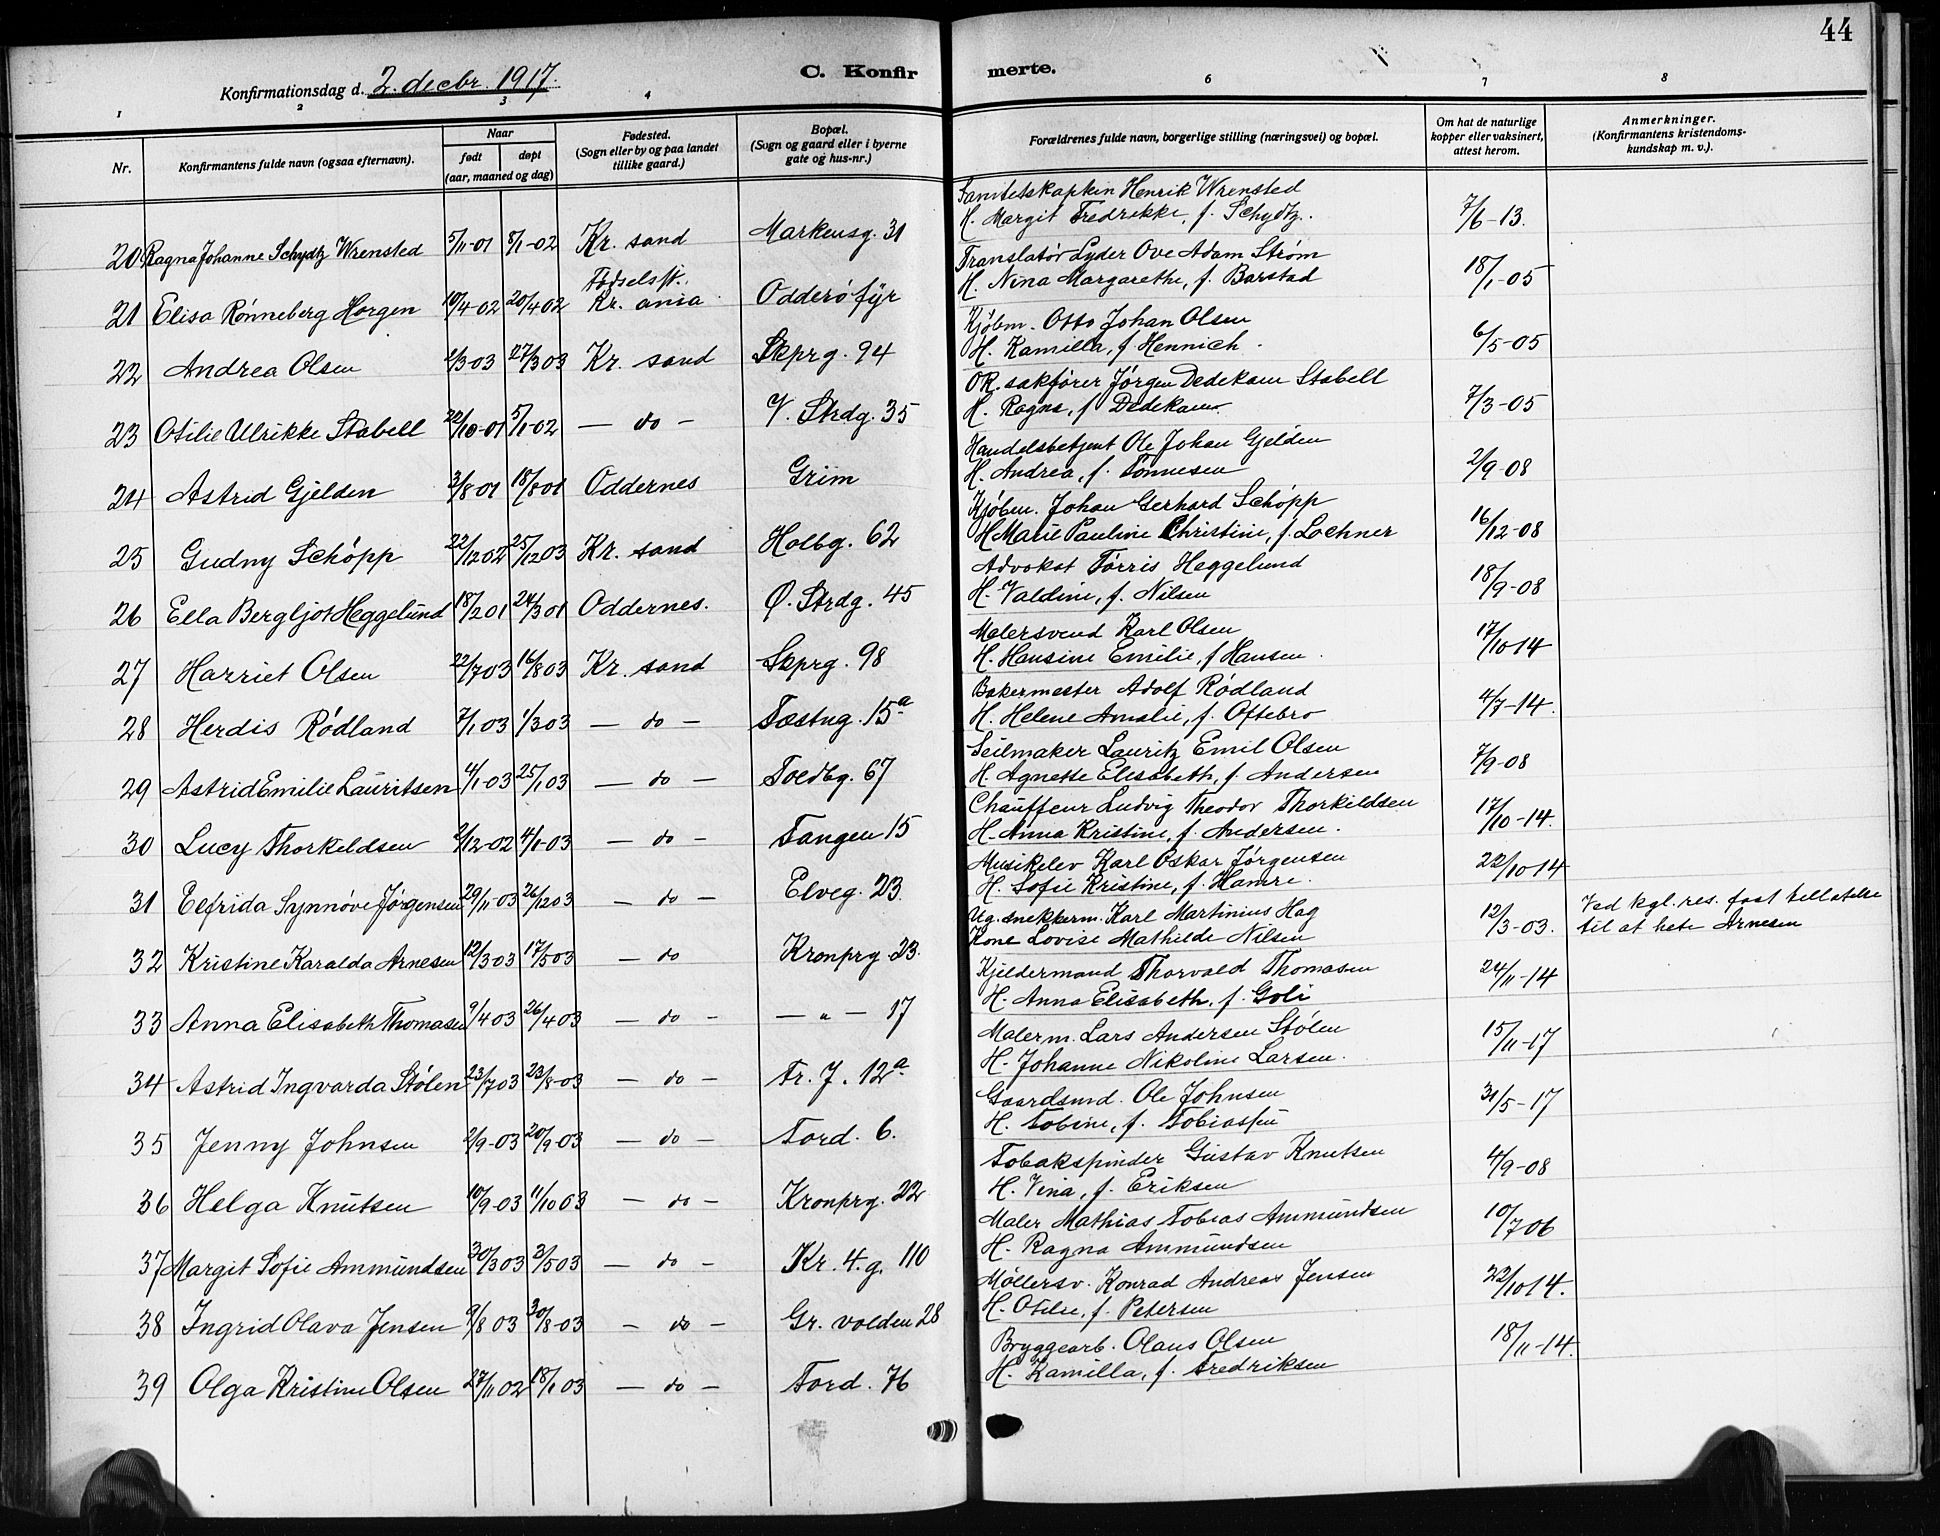 44
Konfirmationsdag d. 2. decbr. 1917.
C. Konfirmerte.
1 2 3 4 6 7 8
Nr. Konfirmantens fulde navn (ogsaa efternavn). Naar født døpt (aar, maaned og dag) Fødested. (Sogn eller by og paa landet tillike gaard.) Bopæl. (Sogn og gaard eller i byerne gate og hus-nr.) Forældrenes fulde navn, borgerlige stilling (næringsvei) og bopæl. Om hat de naturlige kopper eller vaksinert, attest herom. Anmerkninger. (Konfirmantens kristendoms-kundskap m. v.).
Henrik Wrensted
20 Ragna Johanne Schydtz Wrensted 5/11-01 5/1-02 Kr. sand Markensg. 31 H. Margit Fredrikke, f. Schydtz. 7/6-13.
Fødselsst. Translatør Lyder Ove Adam Strøm
21 Elisa Rønneberg Horgen 10/4-02 20/4 02 Kr. ania Odderø fyr H. Nina Margarethe, f. Barstad 18/1-05
Kjøbm. Otto Johan Olsen
22 Andrea Olsen 2/3 03 27/3 03 Kr. sand Skprg. 94 H. Kamilla, f. Hennich. 6/5-05
OR. sakfører Jørgen Dedekam Stabell
23 Otilie Ulrikke Stabell 22/10-01 5/1-02 — do — V. Strdg. 35 H. Ragna, f. Dedekam. 7/3-05
Handelsbetjent Ole Johan Gjelden
24 Astrid Gjelden 3/8-01 18/8 01 Oddernes Grim H. Andrea, f. Tønnesen 2/9-08
Kjøbm. Johan Gerhard Schöpp
25 Gudny Schöpp 22/12 02 25/12 03 Kr. sand Holbg. 62 H. Marie Pauline Christine, f. Lochner 16/12-08
Advokat Tørris Heggelund
26 Ella Bergljot Heggelund 18/2 01 24/3 01 Oddernes. Ø. Strdg. 45 H. Valdine, f. Nilsen 18/9-08
Malersvend Karl Olsen
27 Harriet Olsen 22/7 03 16/8 03 Kr. sand Skprg. 98 H. Hansine Emilie, f. Hansen. 17/10 14
Bakermester Adolf Rødland
28 Herdis Rødland 7/1 03 1/3 03 — do — Fæstng. 15a H. Helene Amalie, f. Oftebro 4/7-14.
Seilmaker Lauritz Emil Olsen
29 Astrid Emilie Lauritsen 4/1-03 25/1 03 — do — Toldbg. 67 H. Agnette Elisabeth, f. Andersen 7/9-08
Chauffeur Ludvig Theodor Thorkildsen
30 Lucy Thorkildsen 2/12-02 4/1-03 — do — Tangen 15 H. Anna Kristine, f. Andersen. 17/10-14.
Musikelev Karl Oskar Jørgensen
31 Elfrida Synnøve Jørgensen 29/11-03 26/12 03 — do — Elveg. 23. H. Sofie Kristine, f. Hamre. 22/10-14
Ug. snekkerm. Karl Martinius Hag Ved kgl. res. faat tillatelse
32 Kristine Karalda Arnesen 12/3 03 17/5 03 — do Kronprg. 23. Kone Lovise Mathilde Nilsen 12/3-03. til at hete Arnesen
Kjeldermand Thorvald Thomasen
33 Anna Elisabeth Thomasen 9/4 03 26/4 03 — do — — " — 17 H. Anna Elisabeth, f. Goli 24/11-14
Malerm. Lars Andersen Stølen
34 Astrid Ingvarda Stølen 23/7 03 23/8-03 — do — Fr. J. 12a H. Johanne Nikoline Larsen. 15/11-17
Gaardsmd. Ole Johnsen
35 Jenny Johnsen 2/9-03 20/9-03 — do — Tord. 6. H. Tobine, f. 31/5-17
Tobakspinder Gustav Knutsen
36 Helga Knutsen 10/9-03 11/10 03 — do — Kronprg. 22 H. Vina, f. Eriksen 4/9-08
Maler Mathias Tobias Ammundsen
37 Margit Sofie Ammundsen 30/3 03 3/5 03 — do — Kr. 4. g. 110 H. Ragna Ammundsen 10/7 06
Møllersv. Konrad Andreas Jensen
38 Ingrid Olava Jensen 9/8 03 30/8-03 — do — Gr. volden 28 H. Otilie, f. Petersen 22/10 14.
Bryggearb. Olaus Olsen
39 Olga Kristine Olsen 27/11 02 18/1 03 — do — Tord. 76 H. Kamilla, f. Fredriksen 18/11-14.